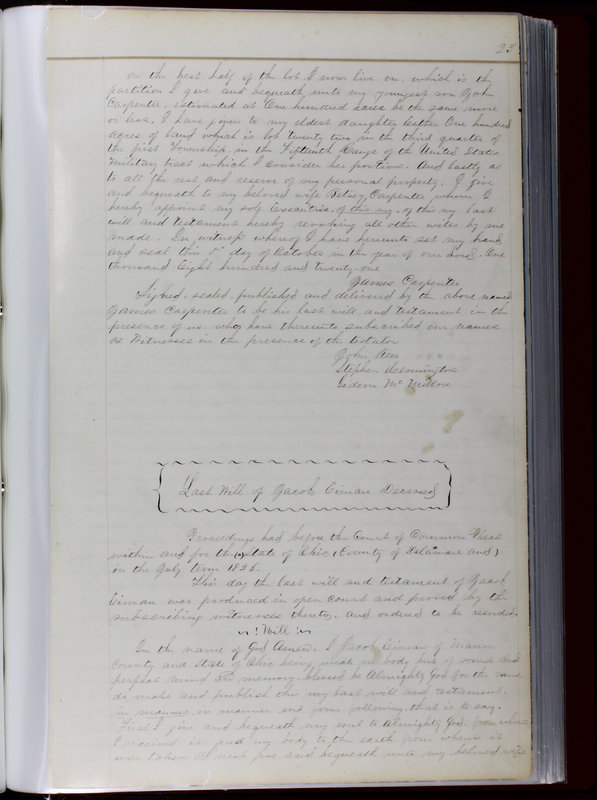 23
on the best half of the lot I now live on. which is the
partition I give and bequeath unto my youngest son John
Carpenter. estimated at One hundred acres be the same more
or less. I have given to my eldest daughter Esther One hundred
acres of land which is lot twenty two in the third quarter of
the first Township in the Fifteenth Range of the United States
Military tract which I consider her portion. And lastly as
to all the rest and reserve of my personal property. I give
and bequeath to my beloved wife Betsey Carpenter whom I
hereby appoint my sole Executrix. of this my. of this my last
will and testament hereby revoking all other wills by me
made. In witness whereof I have hereunto set my hand
and seal this day of October in the year of our Lord. One
thousand Eight hundred and twenty-one
James Carpenter
Signed. sealed. published and delivered by the above named
James Carpenter to be his last will and testament in the
presence of us. who have thereunto subscribed our names
as Witnesses in the presence of the testator
John
Stephen Dennington
Gideon Mc
Last Will of Jacob Eiman Deceased
Proceedings had before the Court of Common Pleas
within and for the State of Ohio (County of Delaware and)
in the July term 1825.
This day the last will and testament of Jacob
Eiman was produced in open Court and proved by the
subscribing witnesses thereto. and ordered to be recorded.
Will
In the name of God Amen. I Jacob Eiman of Marion
County and State of Ohio being weak in body but of sound and
perfect mind and memory blessed be Almighty God for the same
do make and publish this my last will and testament.
in manner. in manner and form following. that is to say.
First I give and bequeath my soul to Almighty God. from whom
I received it and my body to the earth from whence it
was taken I next give and bequeath unto my beloved wife